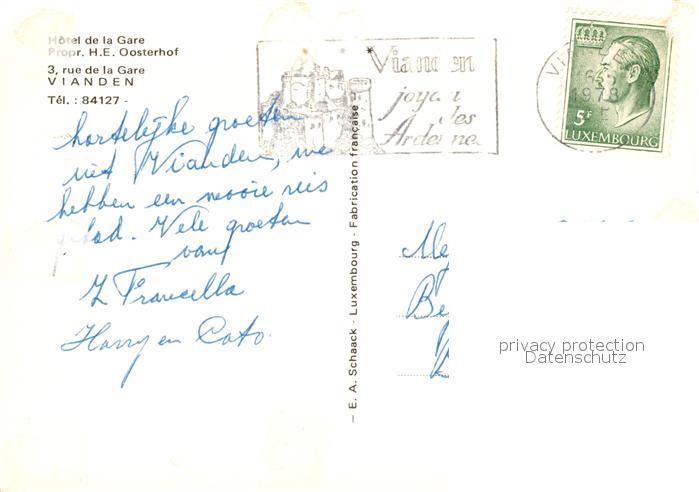 Hôtel de la Gare
Propr. H.E. Oosterhof
3, rue de la Gare
VIANDEN
Tél. : 84127 -
Vianden
joyau
des
Ardennes
1978
5F
LUXEMBOURG
hartelijke groeten
uit Vianden, we
hebben een mooie reis
gehad. Vele groeten
van
Francella
Harry en Cato.
— E. A. Schaack - Luxembourg - Fabrication française —
Me
Be
privacy protection
Datenschutz